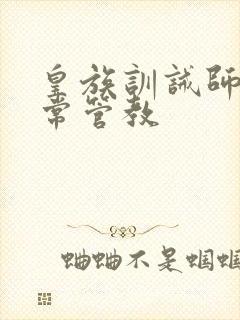 皇族訓誡師
常管教
蛐蛐不是蝈蝈